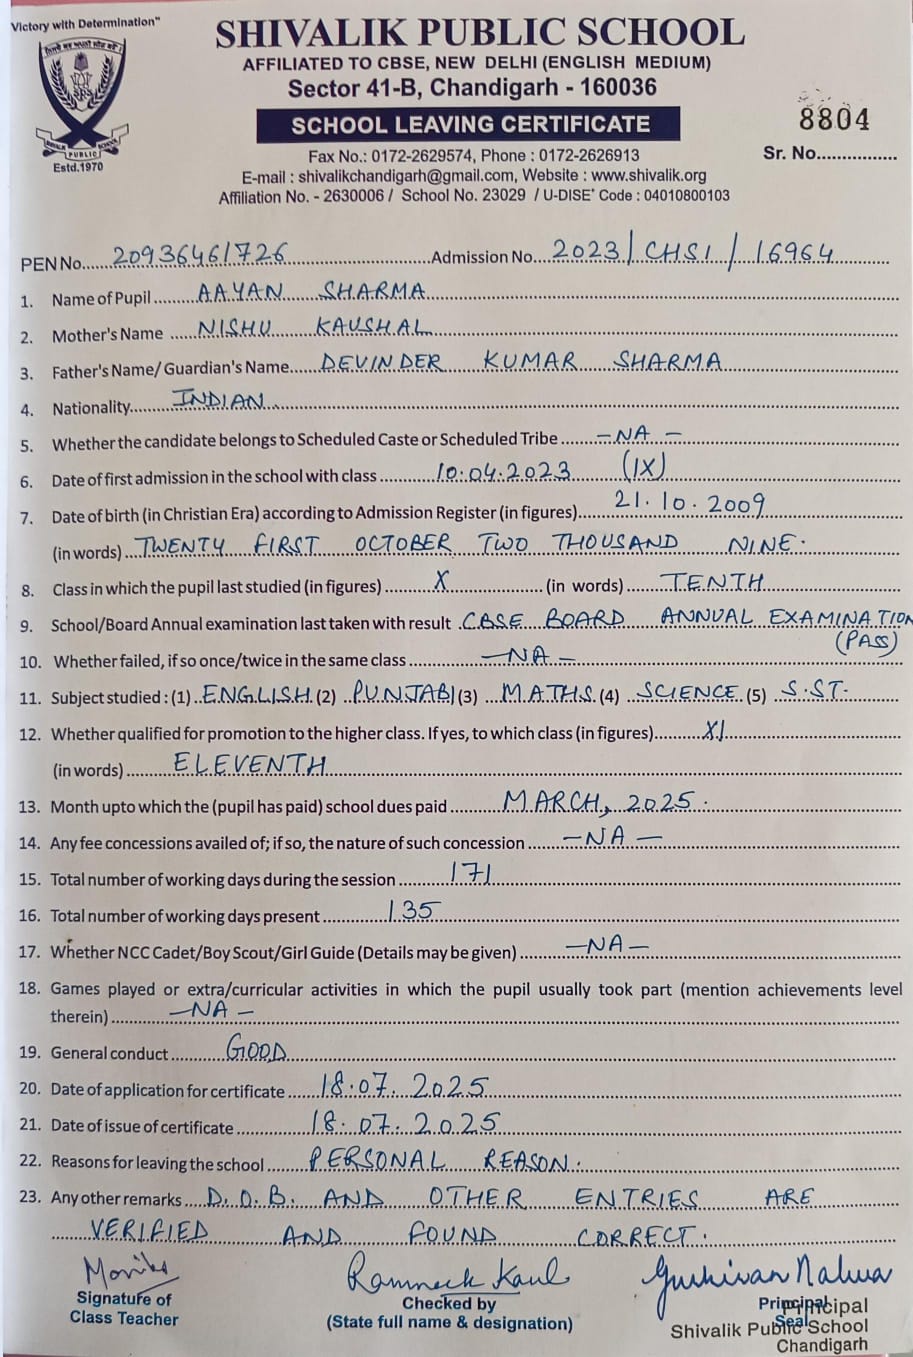 Victory with Determination"
SHIVALIK PUBLIC SCHOOL
AFFILIATED TO CBSE, NEW DELHI (ENGLISH MEDIUM)
Sector 41-B, Chandigarh - 160036
SCHOOL LEAVING CERTIFICATE
8804
Sr. No................
Estd.1970
Fax No.: 0172-2629574, Phone : 0172-2626913
E-mail : shivalikchandigarh@gmail.com, Website : www.shivalik.org
Affiliation No. - 2630006 / School No. 23029 / U-DISE+ Code : 04010800103
PEN No. 20936461726 Admission No. 2023/CHSI/16964
1. Name of Pupil AAYAN SHARMA
2. Mother's Name NISHU KAUSHAL
3. Father's Name/ Guardian's Name DEVINDER KUMAR SHARMA
4. Nationality INDIAN
5. Whether the candidate belongs to Scheduled Caste or Scheduled Tribe -NA-
6. Date of first admission in the school with class 10.04.2023 (IX)
7. Date of birth (in Christian Era) according to Admission Register (in figures) 21.10.2009
(in words) TWENTY FIRST OCTOBER TWO THOUSAND NINE.
8. Class in which the pupil last studied (in figures) X (in words) TENTH
9. School/Board Annual examination last taken with result CBSE BOARD ANNUAL EXAMINATION
(PASS)
10. Whether failed, if so once/twice in the same class -NA-
11. Subject studied : (1) ENGLISH (2) PUNJABI (3) MATHS (4) SCIENCE (5) S.ST.
12. Whether qualified for promotion to the higher class. If yes, to which class (in figures) XI
(in words) ELEVENTH
13. Month upto which the (pupil has paid) school dues paid MARCH, 2025.
14. Any fee concessions availed of; if so, the nature of such concession -NA-
15. Total number of working days during the session 171
16. Total number of working days present 135
17. Whether NCC Cadet/Boy Scout/Girl Guide (Details may be given) -NA-
18. Games played or extra/curricular activities in which the pupil usually took part (mention achievements level
therein) -NA-
19. General conduct GOOD
20. Date of application for certificate 18.07.2025
21. Date of issue of certificate 18.07.2025
22. Reasons for leaving the school PERSONAL REASON.
23. Any other remarks D.O.B. AND OTHER ENTRIES ARE
VERIFIED AND FOUND CORRECT.
Ramneek Kaul
Signature of
Class Teacher
Checked by
(State full name & designation)
Principal
Seal
Principal
Shivalik Public School
Chandigarh